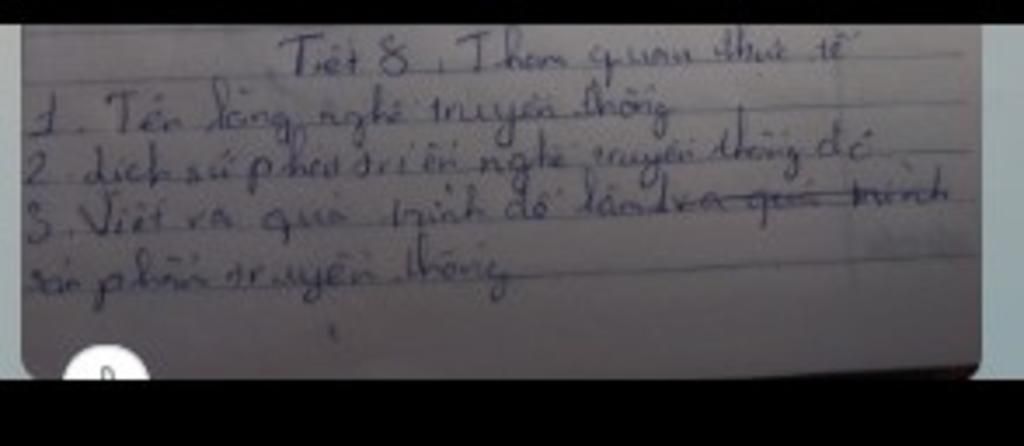 Tiết 8. Tham quan thực tế
1. Tên làng nghề truyền thống
2. Lịch sử phát triển nghề truyền thống đó
3. Viết ra quá trình để làm ra quá trình
sản phẩm truyền thống